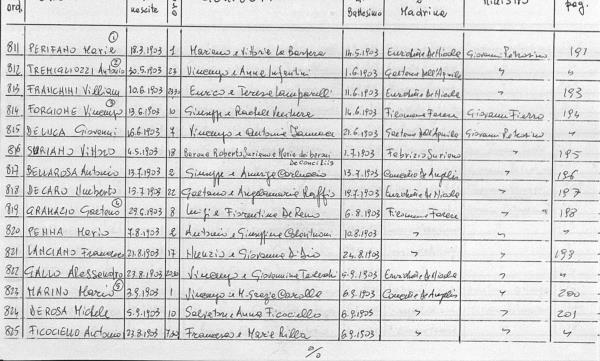 ord. nascita Battesimo Madrina pag.
811 PERIFANO Maria ① 18.3.1903 1 Mariano e Vittoria La Barbera 14.5.1903 Eurosia De Nicola Giovanni Petrosino 191
812 TREMIGLIOZZI Antonio ② 30.5.1903 23 Vincenzo e Anna Infantini 1.6.1903 Gaetana Dell'Aquila " "
813 FRANCHINI William 10.6.1903 Enrico e Teresa Lamparelli 11.6.1903 Eurosia De Nicola " 193
814 FORGIONE Vincenzo ③ 13.6.1903 10 Giuseppe e Rachele Ventura 14.6.1903 Filomena Farese Giovanni Fierro 194
815 DE LUCA Giovanni 16.6.1903 7 Vincenzo e Antonia Iannuzzi 21.6.1903 Gaetana Dell'Aquila Giovanni Petrosino "
816 SURIANO Vittorio 4.5.1903 18 Barone Roberto Suriano e Maria dei baroni De Conciliis 1.7.1903 Fabrizio Suriano " 195
817 BELLAROSA Antonio 13.7.1903 2 Giuseppe e 13.7.1903 Concetta De Angelis " 196
818 DE CARO Umberto 15.7.1903 22 Gaetano e Angelamaria 19.7.1903 Eurosia De Nicola " 197
819 GRAMAZIO Gaetano ④ 29.6.1903 8 Luigi e Fiorentina De Piano 6.8.1903 Filomena Farese " 198
820 PENNA Mario 7.8.1903 2 Antonio e Giuseppina Colantuoni 10.8.1903 " " "
821 LANCIANO Francesco 21.8.1903 17 Nunzio e Giovanna D'Isio 24.8.1903 " " 199
822 GALLO Alessandro 23.8.1903 Vincenzo e Giovannina Tedeschi 5.9.1903 Eurosia De Nicola " "
823 MARINO Maria ⑤ 3.9.1903 1 Vincenzo e M. Grazia Carolla 6.9.1903 Concetta De Angelis " 200
824 DE ROSA Michele 5.9.1903 10 Salvatore e Anna Ficociello 6.9.1903 " " 201
825 FICOCIELLO Antonio 23.8.1903 Francesco e Maria Rilla 6.9.1903 " " "
%